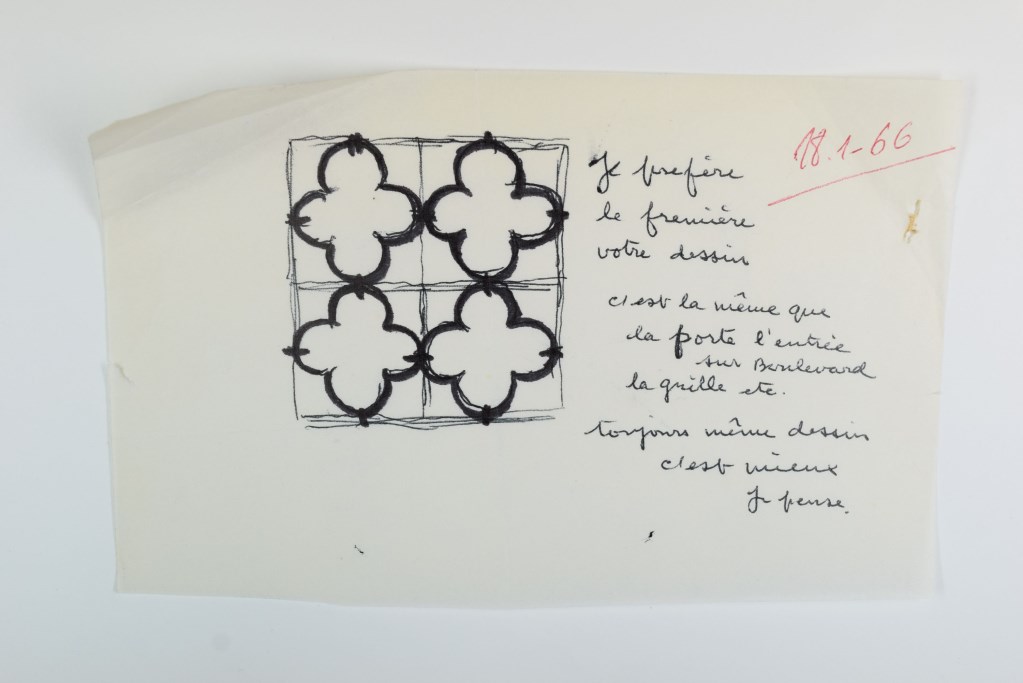 18.1-66
Je prefère
le fremière
votre dessin
c'est la même que
la porte l'entrée
sur Boulevard
la grille etc.
toujours même dessin
c'est mieux
Je pense.